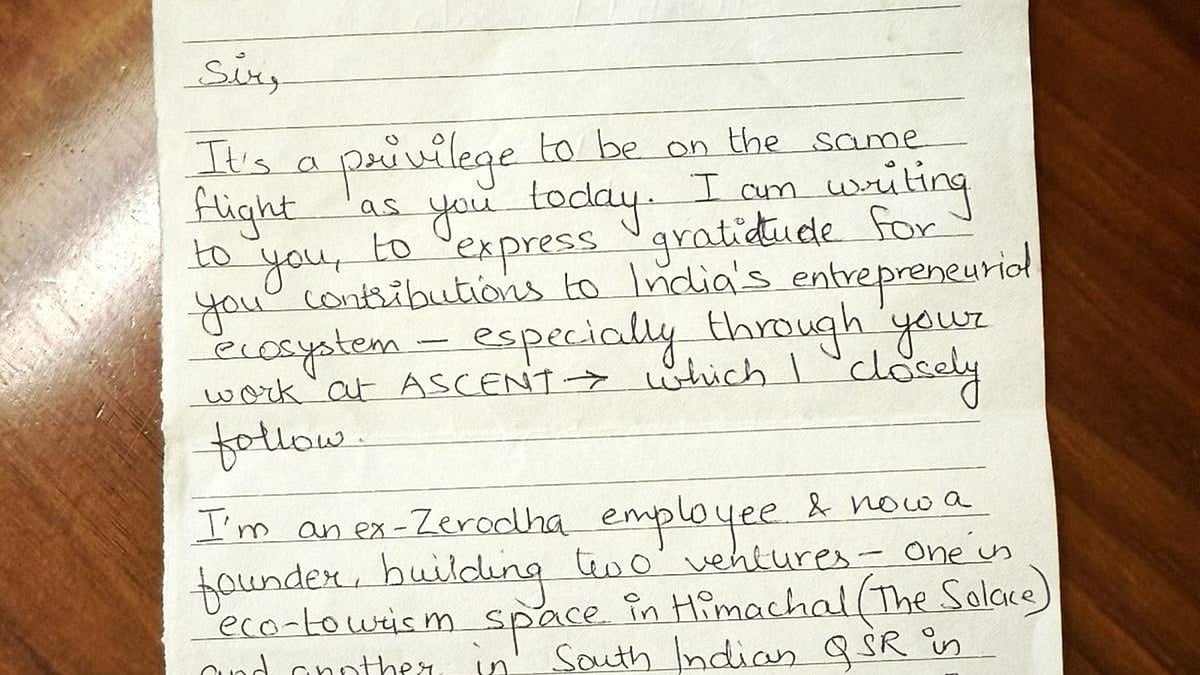 Sir,
It's a privilege to be on the same
flight as you today. I am writing
to you, to express gratidtude for
you contributions to India's entrepreneurial
ecosystem — especially through your
work at ASCENT → which I closely
follow.
I'm an ex-Zerodha employee & now a
founder, building two ventures — one in
eco-tourism space in Himachal (The Solace)
and another in South Indian QSR in